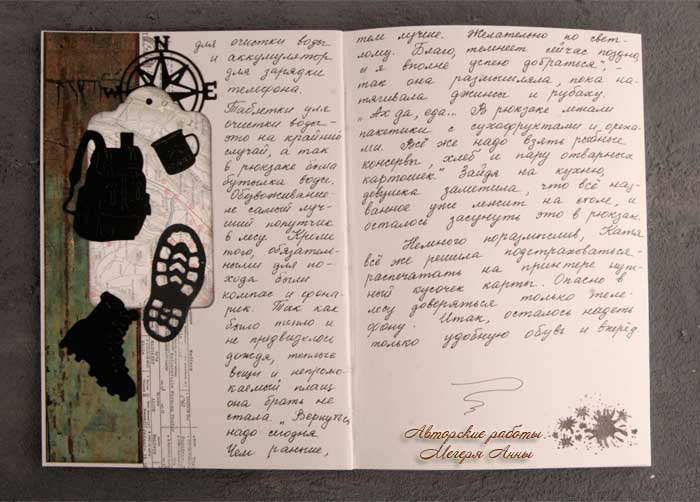 для очистки воды
и аккумулятор
для зарядки
телефона.
Таблетки для
очистки воды –
это на крайний
случай, а так
в рюкзаке была
бутылка воды.
Обезвоживание –
не самый луч-
ший попутчик
в лесу. Кроме
того, обязатель-
ными для по-
хода были
компас и фона-
рик. Так как
было тепло и
не предвиделось
дождя, теплые
вещи и непромо-
каемый плащ
она брать не
стала. „Вернуться
надо сегодня.
Чем раньше,
тем лучше. Желательно по свет-
лому. Благо, темнеет сейчас поздно,
и я вполне успею добраться", –
так она размышляла, пока на-
тягивала джинсы и рубаху.
„Ах да, еда... В рюкзаке лежали
пакетики с сухофруктами и ореха-
ми. Всё же надо взять рыбные
консервы, хлеб и пару отварных
картошек." Зайдя на кухню,
девушка заметила, что всё наз-
ванное уже лежит на столе, и
осталось засунуть это в рюкзак.
Немного поразмыслив, Катя
всё же решила подстраховаться –
распечатать на принтере нуж-
ный кусочек карты. Опасно в
лесу доверяться только теле-
фону. Итак, осталось надеть
только удобную обувь и вперёд.
N
W
E
Авторские работы
Мегеря Анны